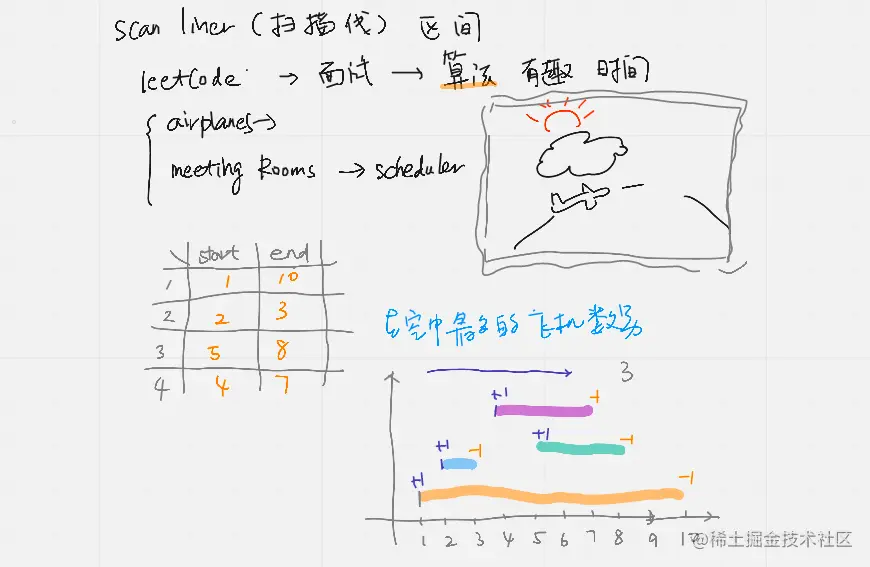 scan liner (扫描线) 区间
leetCode → 面试 → 算法 有趣 时间
airplanes→
meeting Rooms → scheduler
start end
1 1 10
2 2 3
3 5 8
4 4 7
在空中最多的飞机数多
3
+1 -1
+1 -1
+1 -1
+1 -1
1 2 3 4 5 6 7 8 9 10
@稀土掘金技术社区